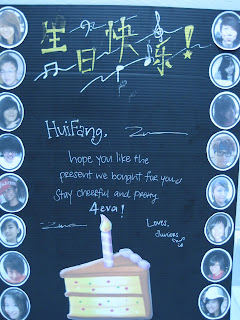 生日快乐!
HuiFang,
hope you like the
present we bought for you
Stay cheerful and pretty
4eva!
Loves,